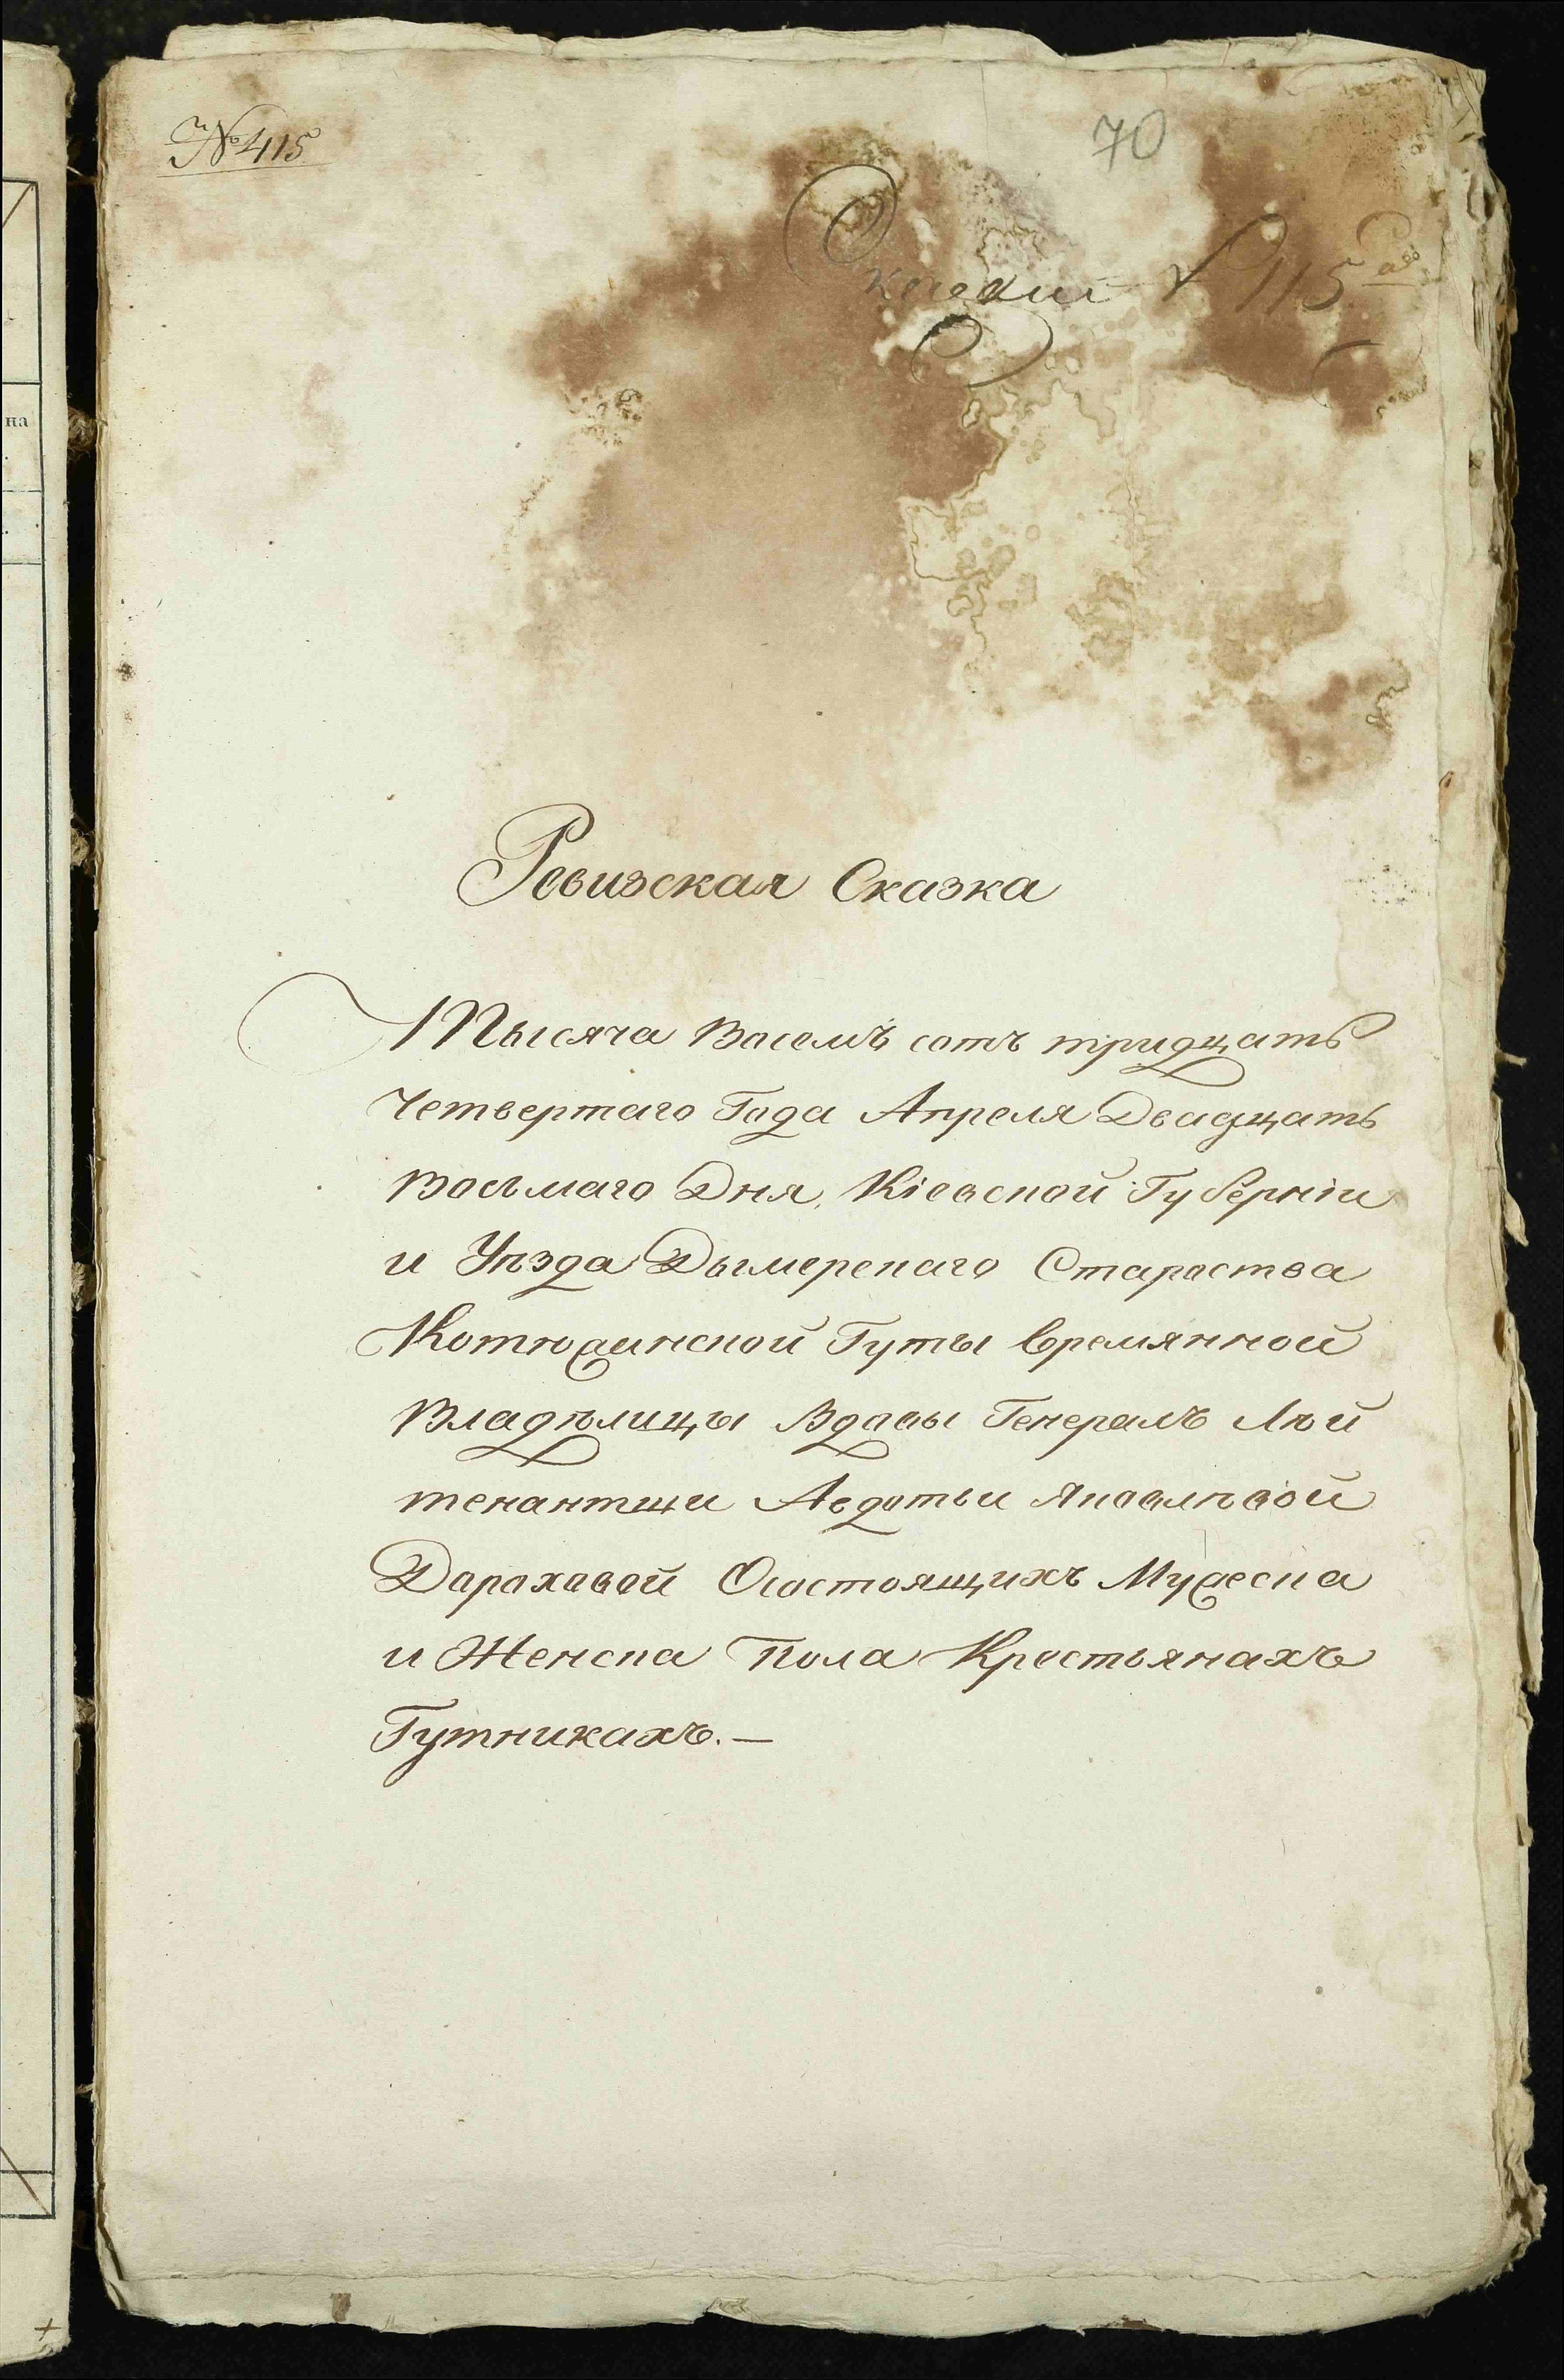 № 415
70
115
на
Ревизская Сказка
Тысяча Восемъ сотъ тридцать
Четвертаго Года Апреля Двадцать
Восьмаго Дня, Кіевской Губерніи
и Уѣзда Дымерскаго Староства
Котюжинской Гуты времянной
Владѣлицы Вдовы Генералъ Лѣй
тенантши Авдотьи Яковлѣвой
Дараховой Осостоящихъ Мужеска
и Женска Пола Крестьянахъ
Гутникахъ. —